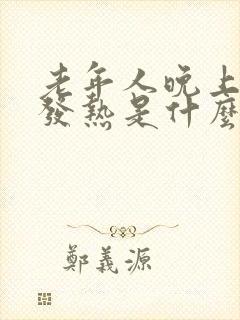 老年人晚上
發熱是什麼
鄭義源